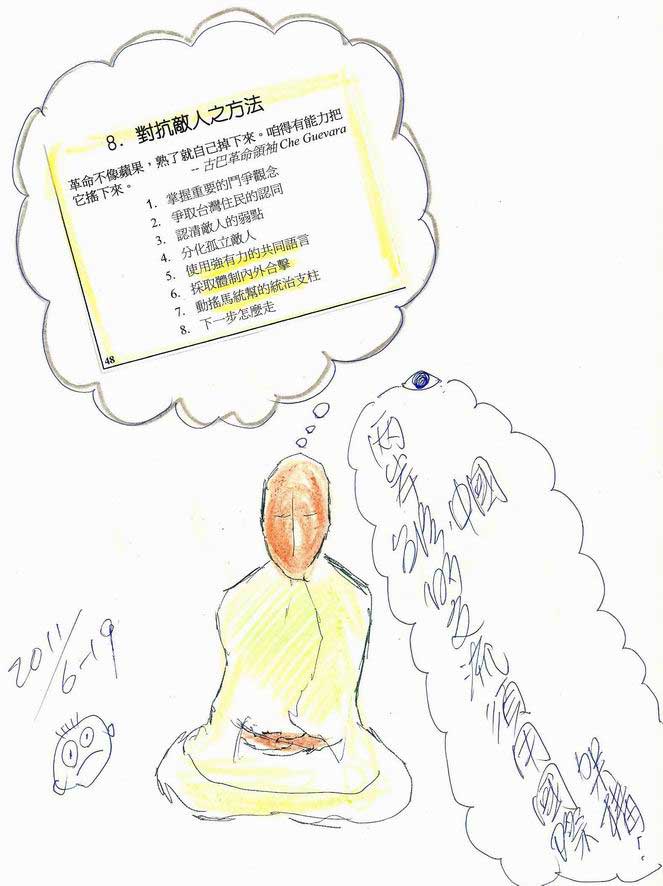 8. 對抗敵人之方法
革命不像蘋果，熟了就自己掉下來。咱得有能力把
它搖下來。
-- 古巴革命領袖 Che Guevara
1. 掌握重要的鬥爭觀念
2. 爭取台灣住民的認同
3. 認清敵人的弱點
4. 分化孤立敵人
5. 使用強有力的共同語言
6. 採取體制內外合擊
7. 動搖馬統幫的統治支柱
8. 下一步怎麼走
48
兩岸
中國
交流須用國際
2011/6-19